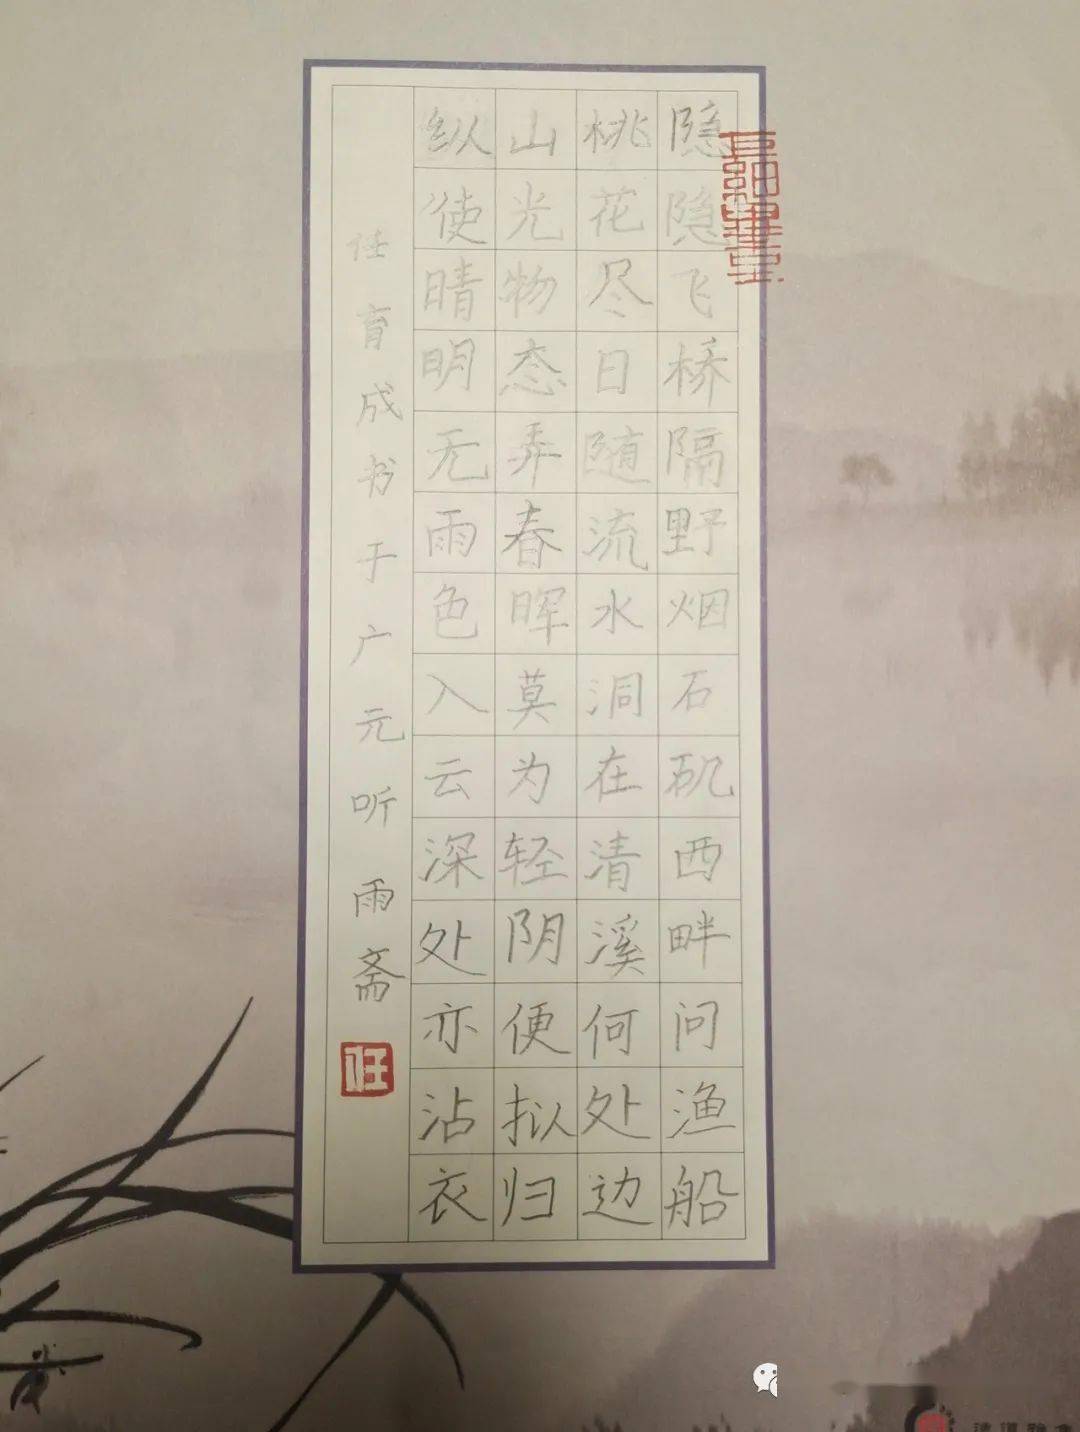 隐隐飞桥隔野烟石矶西畔问渔船
桃花尽日随流水洞在清溪何处边
山光物态弄春晖莫为轻阴便拟归
纵使晴明无雨色入云深处亦沾衣
任育成书于广元听雨斋
任